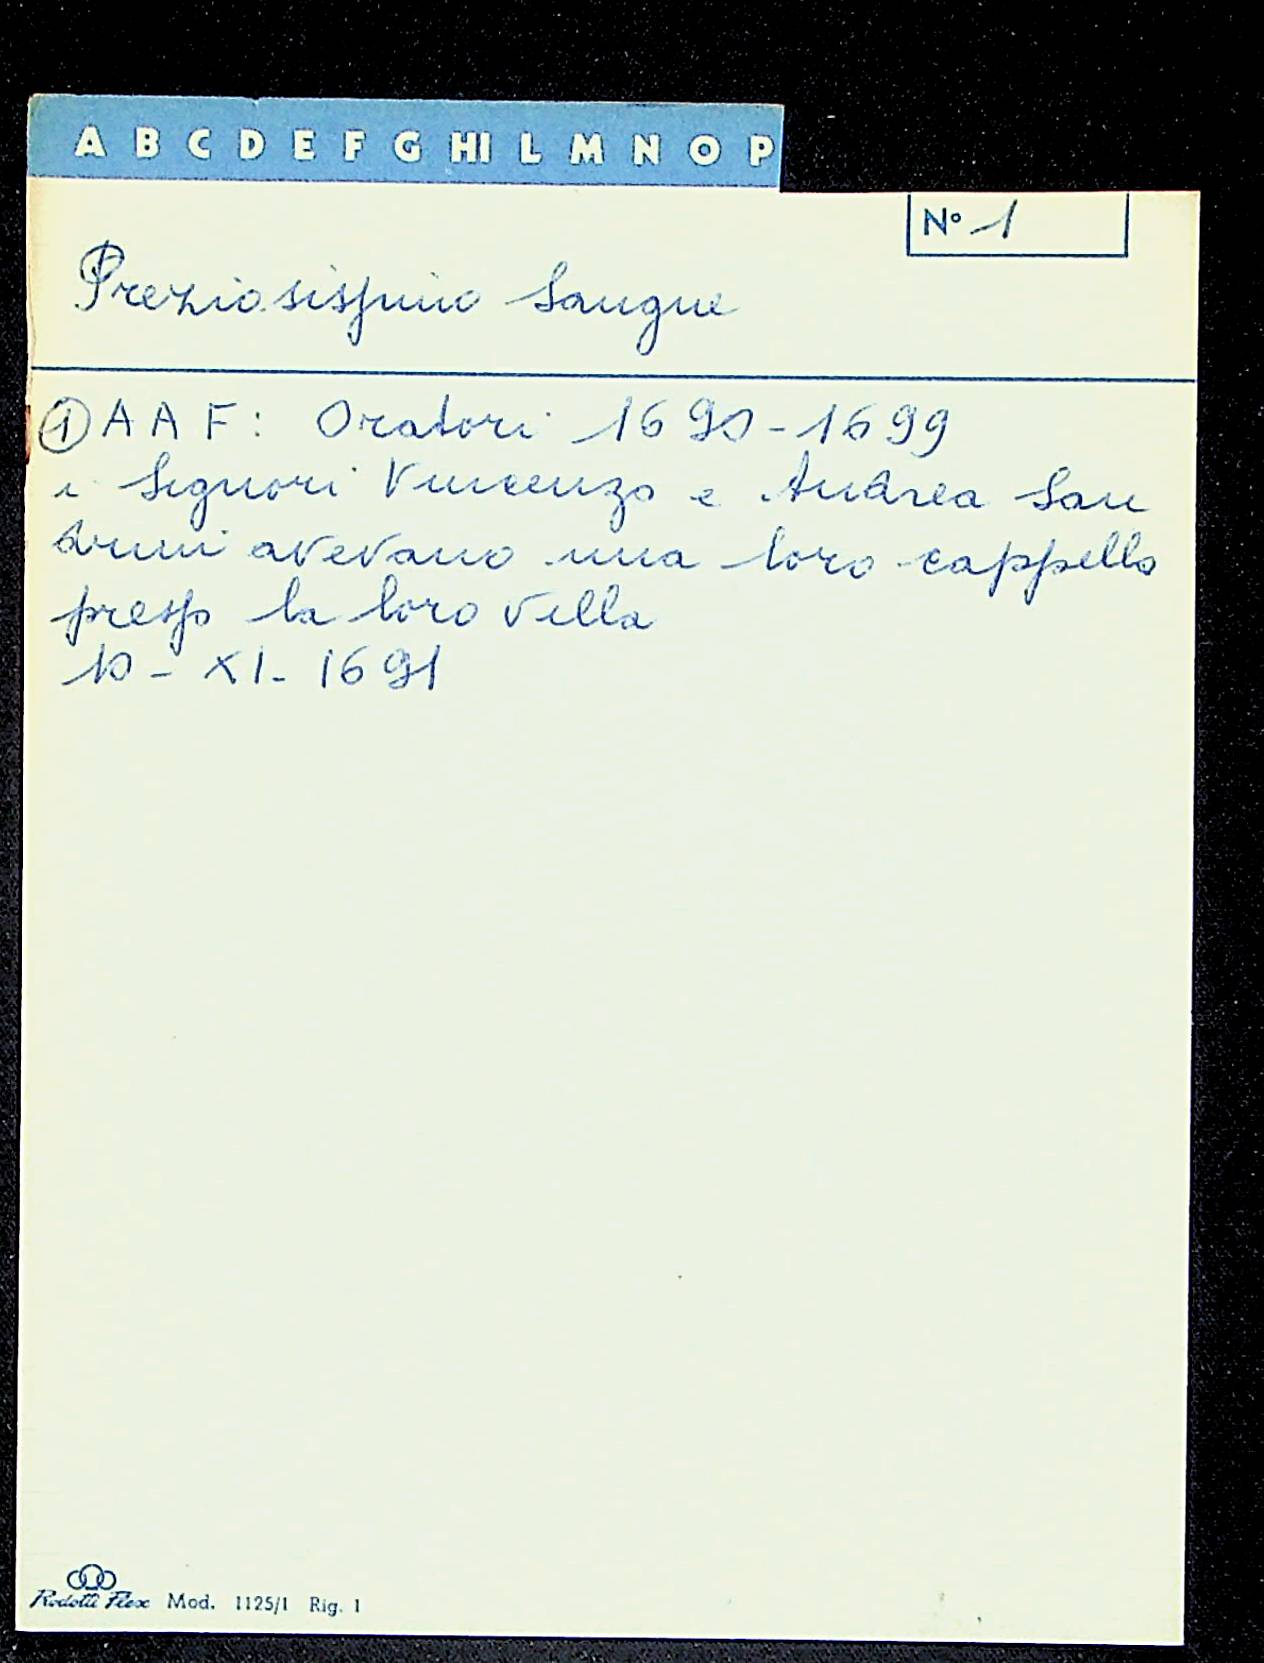 A B C D E F G HI L M N O P
N° 1
Preziosissimo Sangue
① A A F: Oratori 1690-1699
i Signori Vincenzo e Andrea San
drini avevano una loro cappella
presso la loro villa
10 - XI - 1691
Rodotti Flex Mod. 1125/1 Rig. 1